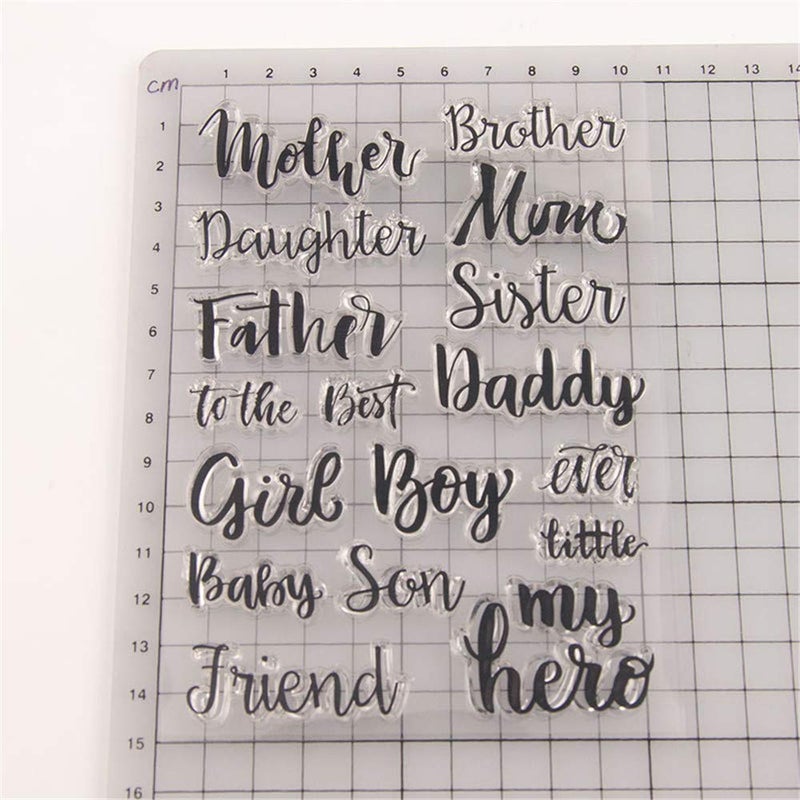 cm 1 2 3 4 5 6 7 8 9 10 11 12 13 14
1
2
3
4
5
6
7
8
9
10
11
12
13
14
15
16
Mother
Brother
Daughter
Mum
Father
Sister
to the Best
Daddy
Girl Boy
ever
little
Baby Son
my
hero
Friend